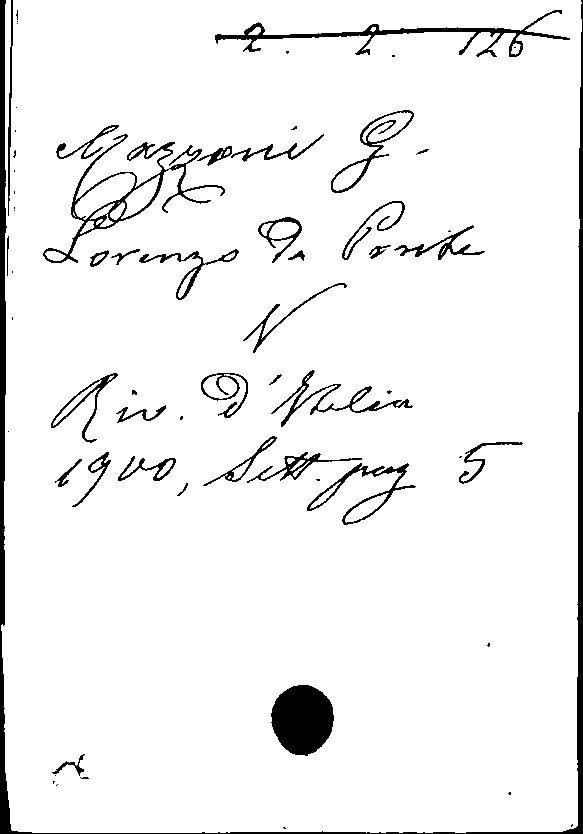 2. 2. 126
Mazzoni G.
Lorenzo Da Ponte
V
Riv. d'Italia
1900, Sett. pag 5